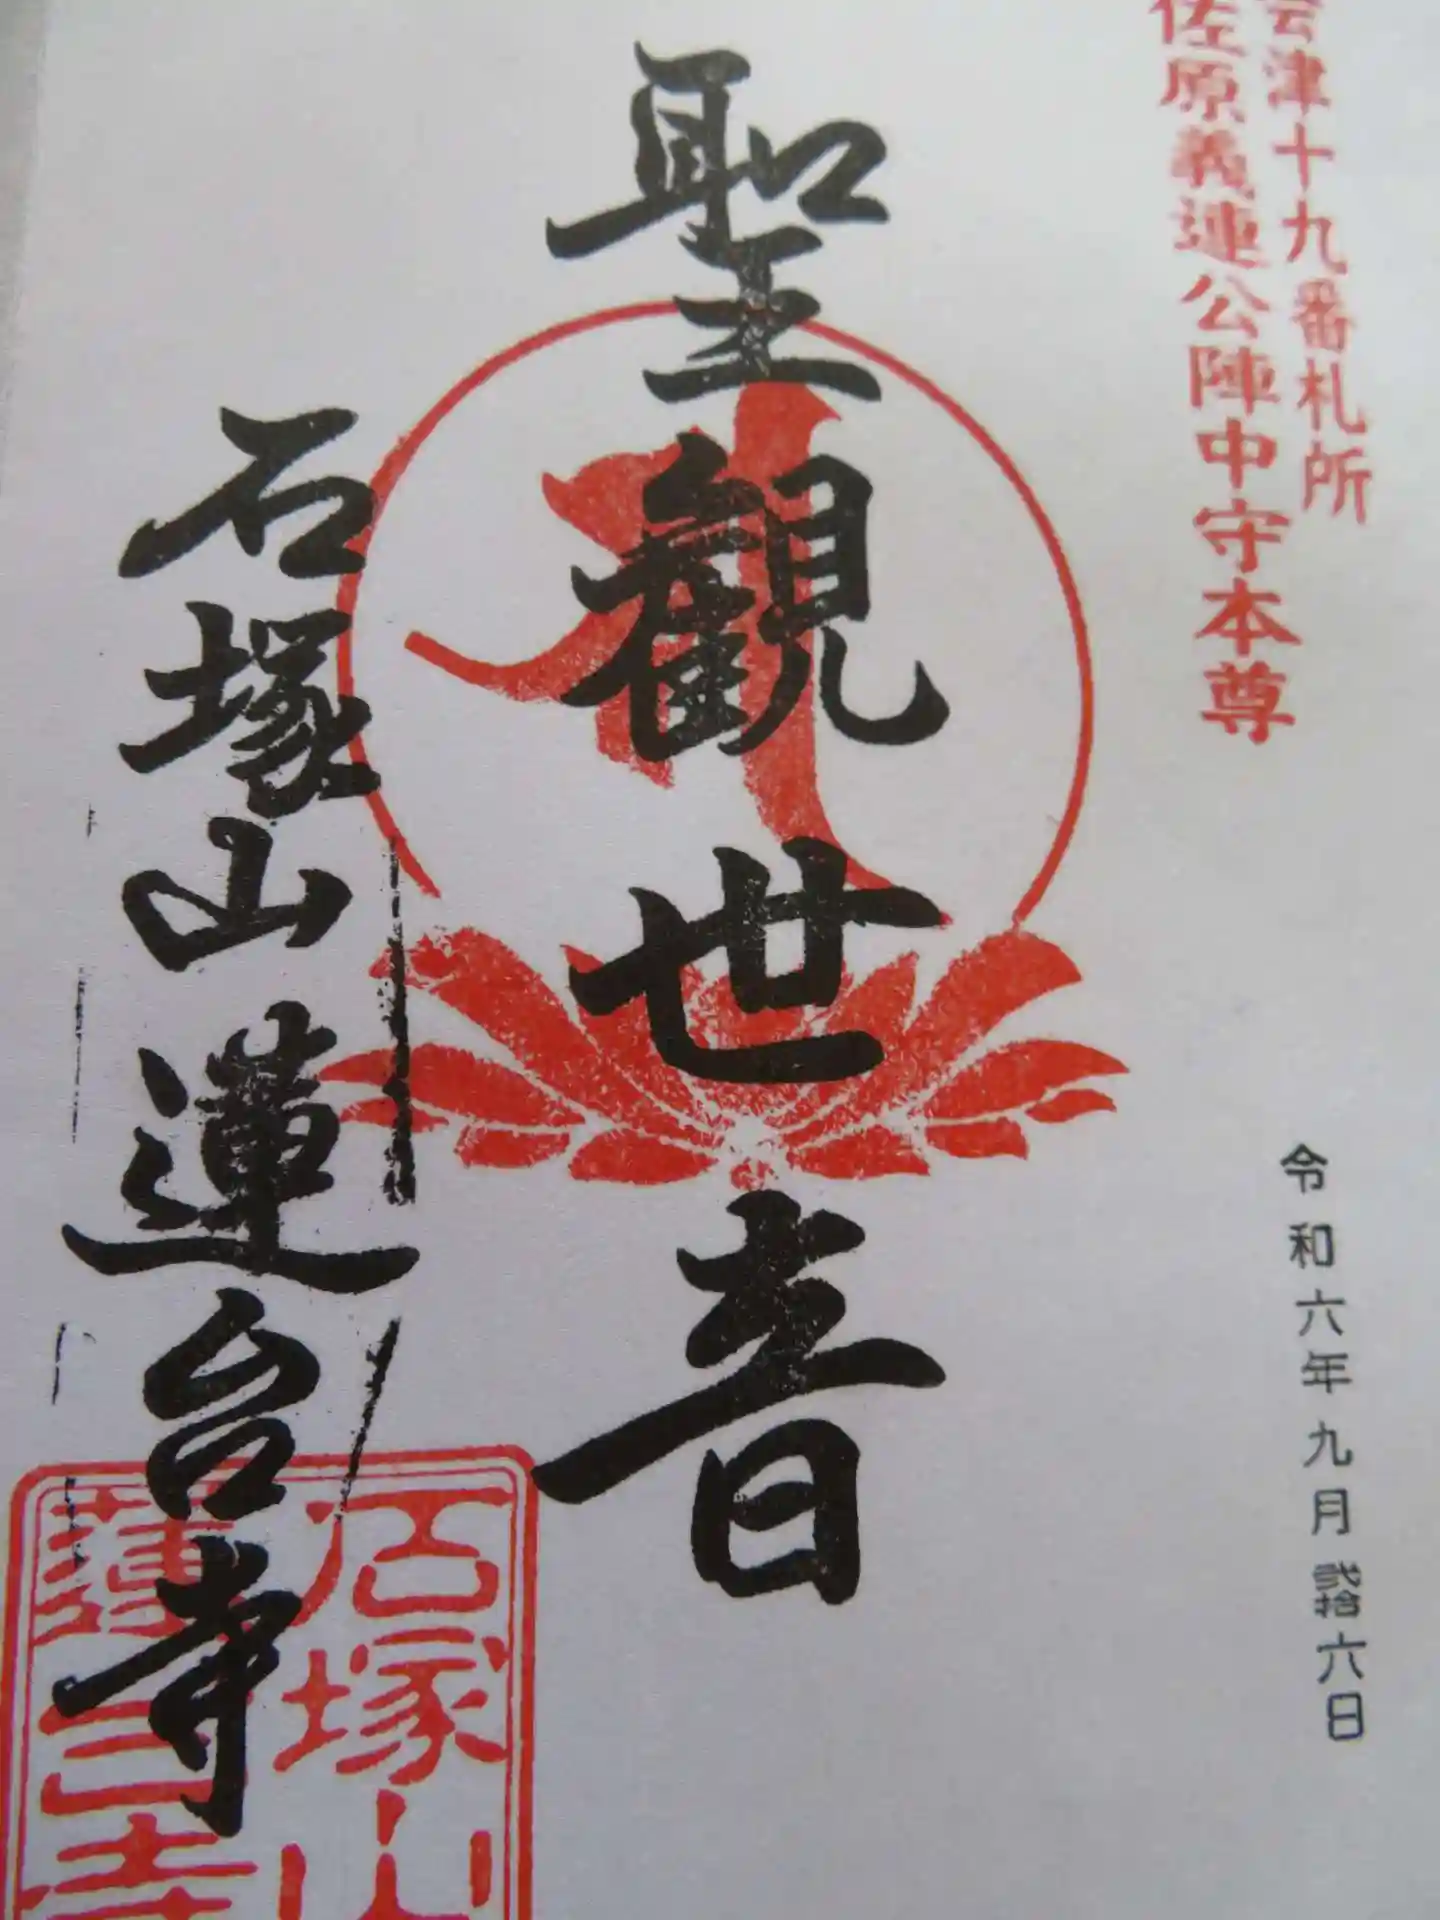 会津十九番札所
佐原義連公陣中守本尊
令和六年九月弐拾六日
聖観世音
石塚山蓮台寺
石塚山
蓮台寺